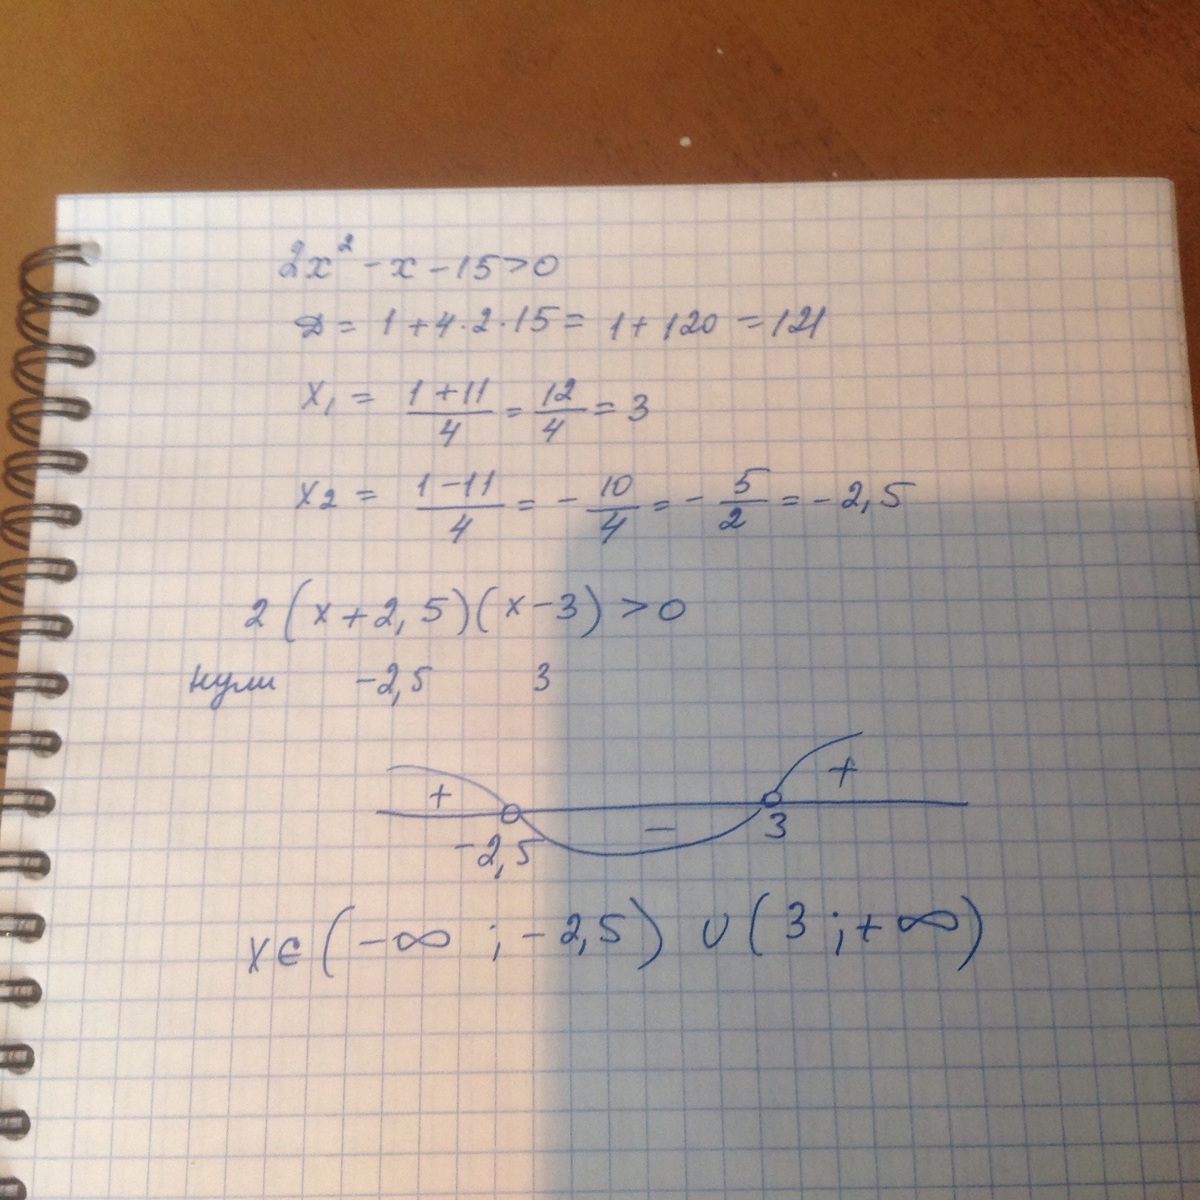 2x² - x - 15 > 0
D = 1 + 4 · 2 · 15 = 1 + 120 = 121
x₁ = (1 + 11)/4 = 12/4 = 3
x₂ = (1 - 11)/4 = - 10/4 = - 5/2 = - 2,5
2 (x + 2,5)(x - 3) > 0
нули -2,5 3
+ - +
-2,5 3
x ∈ (-∞ ; -2,5) ∪ (3 ; +∞)